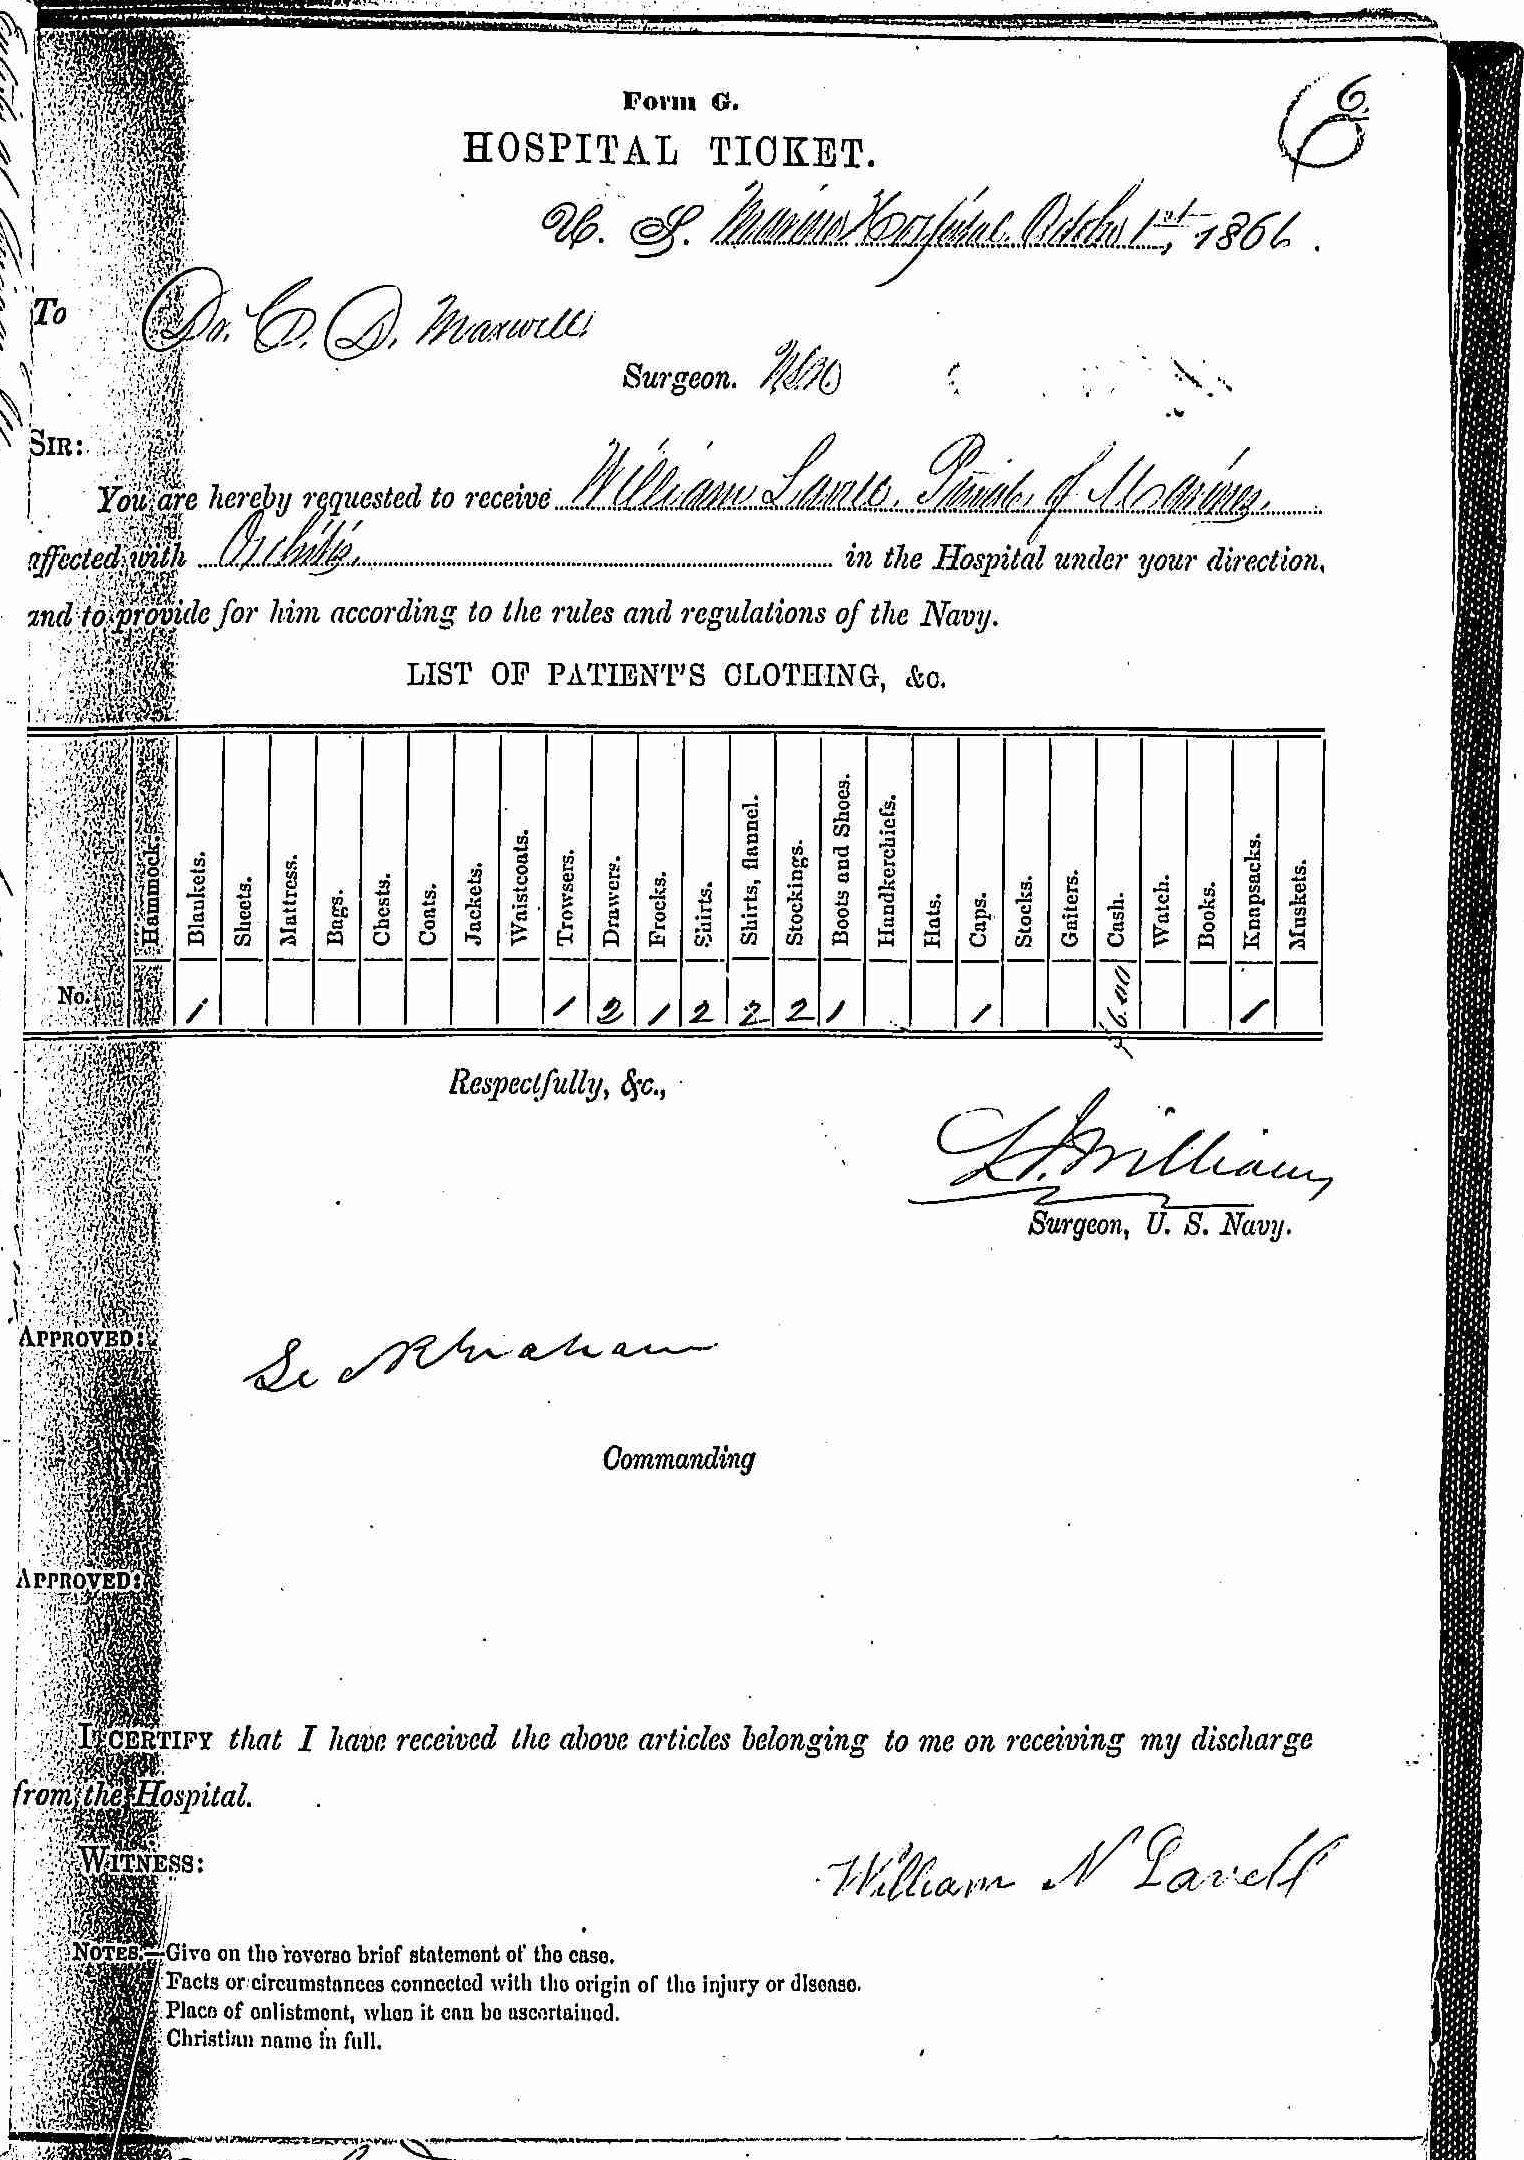 Form G.
6.
HOSPITAL TICKET.
U. S. Marine Hospital. October 1st, 1866.
To Dr. C. D. Maxwell
Surgeon. USN
SIR:
You are hereby requested to receive William Lavell, Private of Marines,
affected with Orchitis, in the Hospital under your direction,
and to provide for him according to the rules and regulations of the Navy.
LIST OF PATIENT'S CLOTHING, &c.
Hammock. Blankets. Sheets. Mattress. Bags. Chests. Coats. Jackets. Waistcoats. Trowsers. Drawers. Frocks. Shirts. Shirts, flannel. Stockings. Boots and Shoes. Handkerchiefs. Hats. Caps. Stocks. Gaiters. Cash. Watch. Books. Knapsacks. Muskets.
No. 1 1 2 1 2 2 2 1 1 $6.00 1
Respectfully, &c.,
Williams
Surgeon, U. S. Navy.
APPROVED:
Commanding
APPROVED:
I CERTIFY that I have received the above articles belonging to me on receiving my discharge
from the Hospital.
WITNESS:
William N Lavell
NOTES.—Give on the reverse brief statement of the case.
Facts or circumstances connected with the origin of the injury or disease.
Place of enlistment, when it can be ascertained.
Christian name in full.